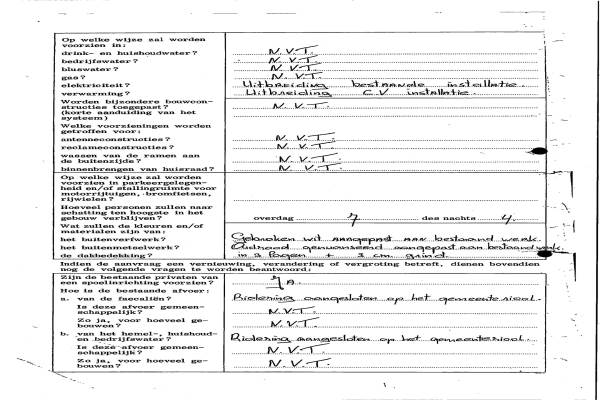 Op welke wijze zal worden
voorzien in:
drink- en huishoudwater? N.V.T.
bedrijfswater? N.V.T.
bluswater? N.V.T.
gas? N.V.T.
elektriciteit? Uitbreiding bestaande installatie.
verwarming? Uitbreiding C.V. installatie.
Worden bijzondere bouwcon-
structies toegepast? N.V.T.
(korte aanduiding van het
systeem)
Welke voorzieningen worden
getroffen voor:
antenneconstructies? N.V.T.
reclameconstructies? N.V.T.
wassen van de ramen aan
de buitenzijde? N.V.T.
binnenbrengen van huisraad? N.V.T.
Op welke wijze zal worden
voorzien in parkeergelegen-
heid en/of stallingruimte voor
motorrijtuigen, bromfietsen,
rijwielen?
Hoeveel personen zullen naar
schatting ten hoogste in het
gebouw verblijven? overdag 7 des nachts 4.
Wat zullen de kleuren en/of
materialen zijn van:
het buitenverfwerk? Gebroken wit aangepast aan bestaand werk.
het buitenmetselwerk? Oudrood genuanceerd aangepast aan bestaand werk.
de dakbedekking? in 3 lagen + 3 cm. grind.
Indien de aanvraag een vernieuwing, verandering of vergroting betreft, dienen bovendien
nog de volgende vragen te worden beantwoord:
Zijn de bestaande privaten van
een spoelinrichting voorzien? JA.
Hoe is de bestaande afvoer:
a. van de faecaliën? Riolering aangesloten op het gemeenteriool.
Is deze afvoer gemeen-
schappelijk? N.V.T.
Zo ja, voor hoeveel ge-
bouwen? N.V.T.
b. van het hemel-, huishoud-
en bedrijfswater? Riolering aangesloten op het gemeenteriool.
Is deze afvoer gemeen-
schappelijk? N.V.T.
Zo ja, voor hoeveel ge-
bouwen? N.V.T.